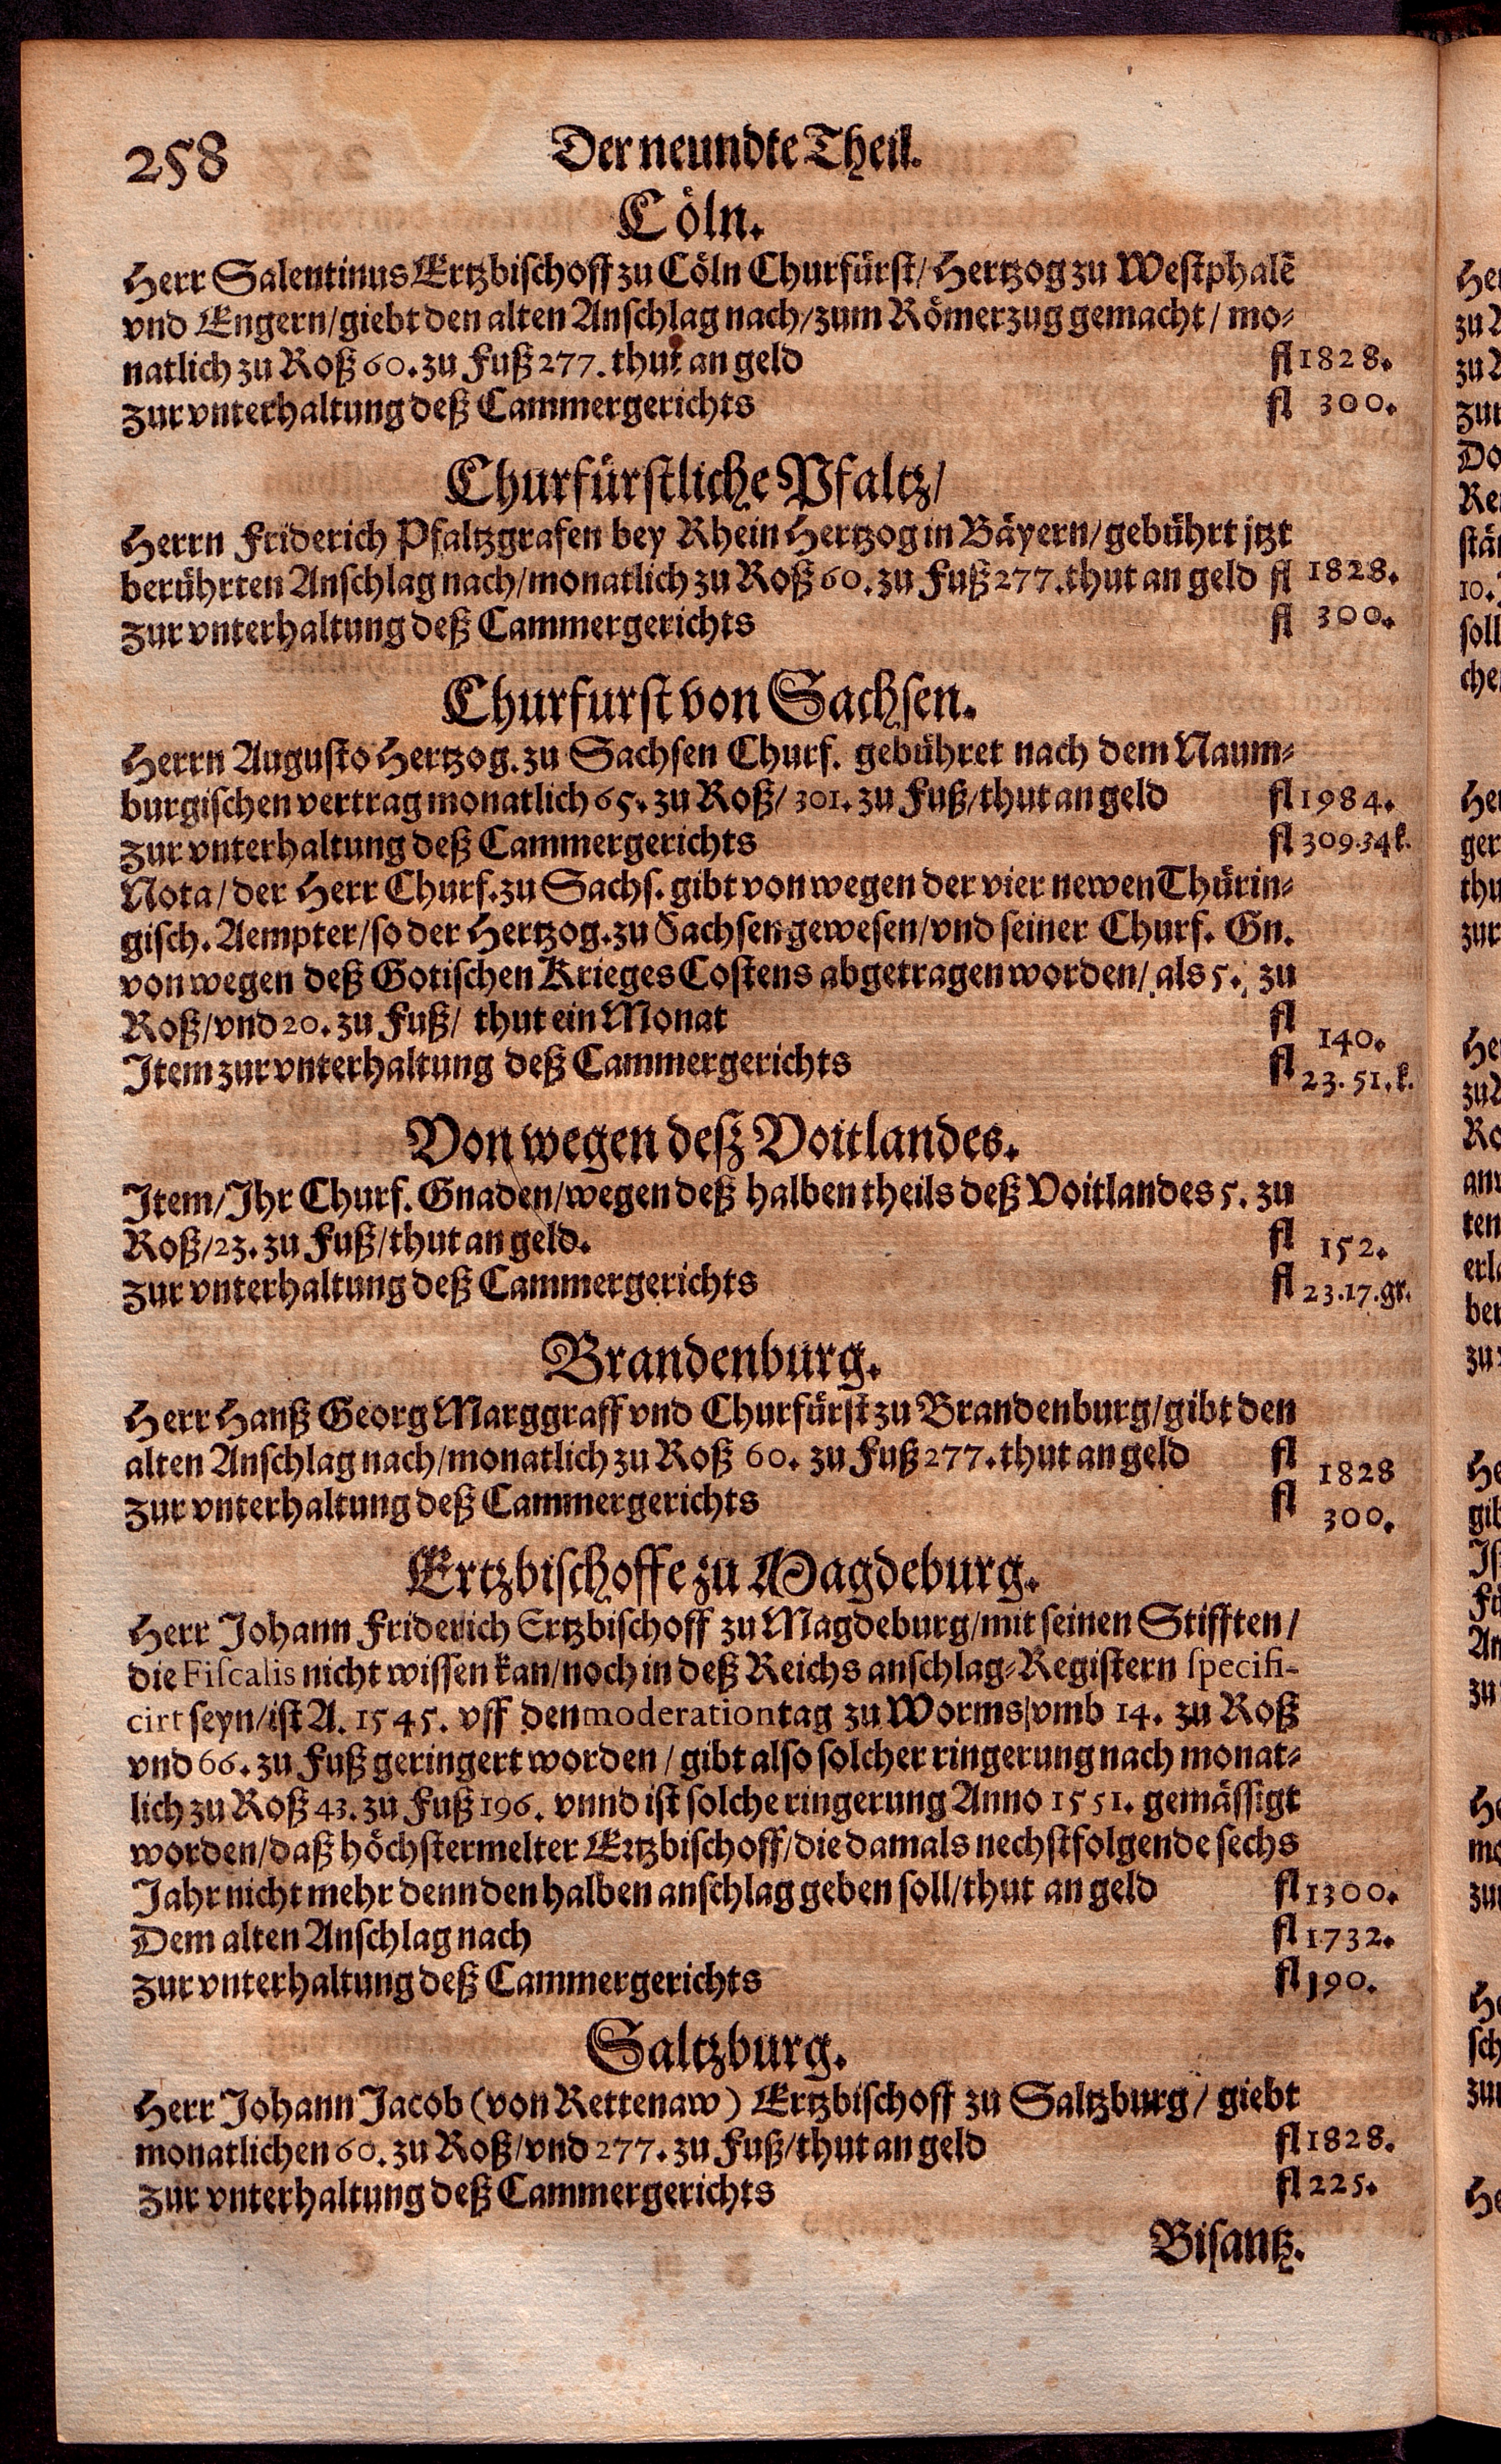 258
Der neundte Theil.
Cöln.
Herr Salentinus Ertzbischoff zu Cöln Churfürst/ Hertzog zu Westphalē
vnd Engern/giebt den alten Anschlag nach/zum Römerzug gemacht/ mo-
natlich zu Roß 60. zu Fuß 277. thut an geld fl 1828.
zur vnterhaltung deß Cammergerichts fl 300.
Churfürstliche Pfaltz/
Herrn Friderich Pfaltzgrafen bey Rhein Hertzog in Bäyern/gebührt jtzt
berührten Anschlag nach/monatlich zu Roß 60. zu Fuß 277. thut an geld fl 1828.
zur vnterhaltung deß Cammergerichts fl 300.
Churfurst von Sachsen.
Herrn Augusto Hertzog. zu Sachsen Churf. gebühret nach dem Naum-
burgischen vertrag monatlich 65. zu Roß/ 301. zu Fuß/thut an geld fl 1984.
zur vnterhaltung deß Cammergerichts fl 309.34k.
Nota/ der Herr Churf. zu Sachs. gibt von wegen der vier newen Thürin-
gisch. Aempter/so der Hertzog. zu Sachsen gewesen/vnd seiner Churf. Gn.
von wegen deß Gotischen Krieges Costens abgetragen worden/ als 5. zu
Roß/vnd 20. zu Fuß/ thut ein Monat fl 140.
Item zur vnterhaltung deß Cammergerichts fl 23. 51. k.
Von wegen deß Voitlandes.
Item/Ihr Churf. Gnaden/wegen deß halben theils deß Voitlandes 5. zu
Roß/23. zu Fuß/thut an geld. fl 152.
zur vnterhaltung deß Cammergerichts fl 23.17.gr.
Brandenburg.
Herr Hanß Georg Marggraff vnd Churfürst zu Brandenburg/gibt den
alten Anschlag nach/monatlich zu Roß 60. zu Fuß 277. thut an geld fl 1828
zur vnterhaltung deß Cammergerichts fl 300.
Ertzbischoffe zu Magdeburg.
Herr Johann Friderich Ertzbischoff zu Magdeburg/mit seinen Stifften/
die Fiscalis nicht wissen kan/noch in deß Reichs anschlag-Registern specifi-
cirt seyn/ist A. 1545. vff den moderation tag zu Worms/vmb 14. zu Roß
vnd 66. zu Fuß geringert worden/ gibt also solcher ringerung nach monat-
lich zu Roß 43. zu Fuß 196. vnnd ist solche ringerung Anno 1551. gemässigt
worden/daß höchstermelter Ertzbischoff/die damals nechstfolgende sechs
Jahr nicht mehr denn den halben anschlag geben soll/thut an geld fl 1300.
Dem alten Anschlag nach fl 1732.
zur vnterhaltung deß Cammergerichts fl 190.
Saltzburg.
Herr Johann Jacob (von Rettenaw) Ertzbischoff zu Saltzburg/ giebt
monatlichen 60. zu Roß/vnd 277. zu Fuß/thut an geld fl 1828.
zur vnterhaltung deß Cammergerichts fl 225.
Bisantz.